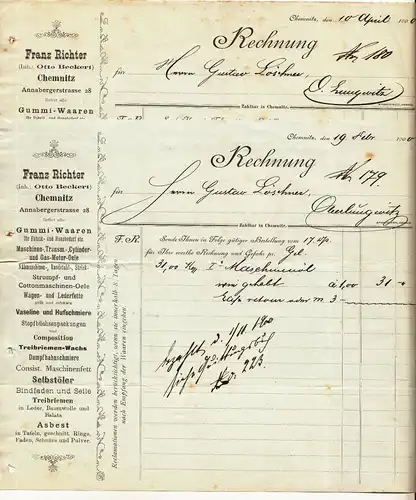 Chemnitz, den 10 April 1900
Franz Richter
(Inh.: Otto Beckert)
Chemnitz
Annabergerstrasse 28
liefert alle
Gummi-Waaren
für Fabrik- und Hausbedarf etc.
Rechnung
No 180
für Herrn Gustav Löschner,
O. Lungwitz
Zahlbar in Chemnitz.
Chemnitz, den 19 Febr. 1900
Franz Richter
(Inh.: Otto Beckert)
Chemnitz
Annabergerstrasse 28
liefert alle
Gummi-Waaren
für Fabrik- und Hausbedarf etc.
Maschinen-, Transm.-, Cylinder-
und Gas-Motor-Oele
Strumpf- und
Cottonmaschinen-Oele
Wagen- und Lederfette
gelb und schwarz
Vaseline und Hufschmiere
Stopfbüchsenpackungen
und
Composition
Treibriemen-Wachs
Dampfhahnschmiere
Consist. Maschinenfett
Selbstöler
Bindfaden und Seile
Treibriemen
in Leder, Baumwolle und
Balata
Asbest
in Tafeln, geschnitt. Ringe,
Faden, Schnüre und Pulver.
Rechnung
No 179.
für Herrn Gustav Löschner,
Oberlungwitz
Zahlbar in Chemnitz.
F. R.
Sende Ihnen in Folge gütiger Bestellung vom 17. d/s.
für Ihre werthe Rechnung und Gefahr pr.
31,00 Kg Ia Maschinenöl
à 1,00 31 -
retour oder m 3 -
Reclamationen werden berücksichtigt, wenn sie innerhalb 8 Tagen
nach Empfang der Waaren eingehen
1/11 1900
223